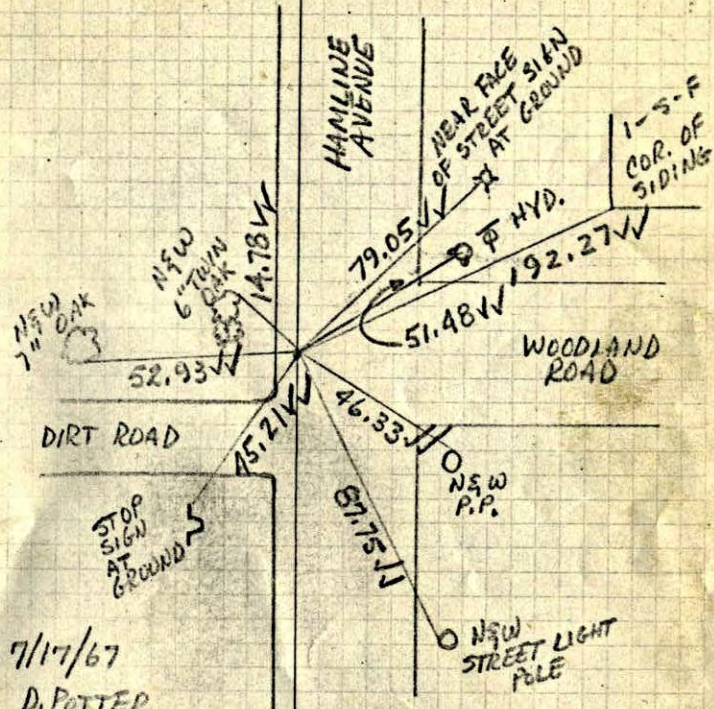 HAMLINE
AVENUE
NEAR FACE
OF STREET SIGN
AT GROUND
1-S-F
COR. OF
SIDING
79.05 ✓✓
HYD.
192.27 ✓✓
51.48 ✓✓
14.78 ✓✓
N&W
6" TWIN
OAK
N&W
7" OAK
52.93 ✓✓
WOODLAND
ROAD
DIRT ROAD
45.21 ✓✓
46.33 ✓✓
N&W
P.P.
STOP
SIGN
AT
GROUND
87.75 ✓✓
N&W
STREET LIGHT
POLE
7/17/67
D. POTTER